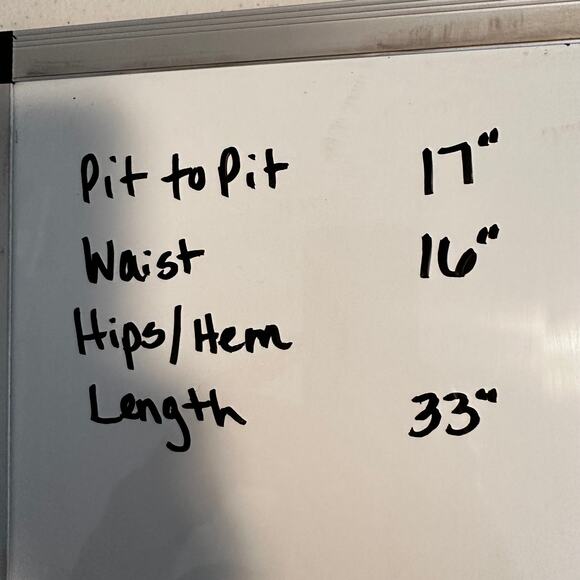 Pit to Pit 17"
Waist 16"
Hips/Hem
Length 33"